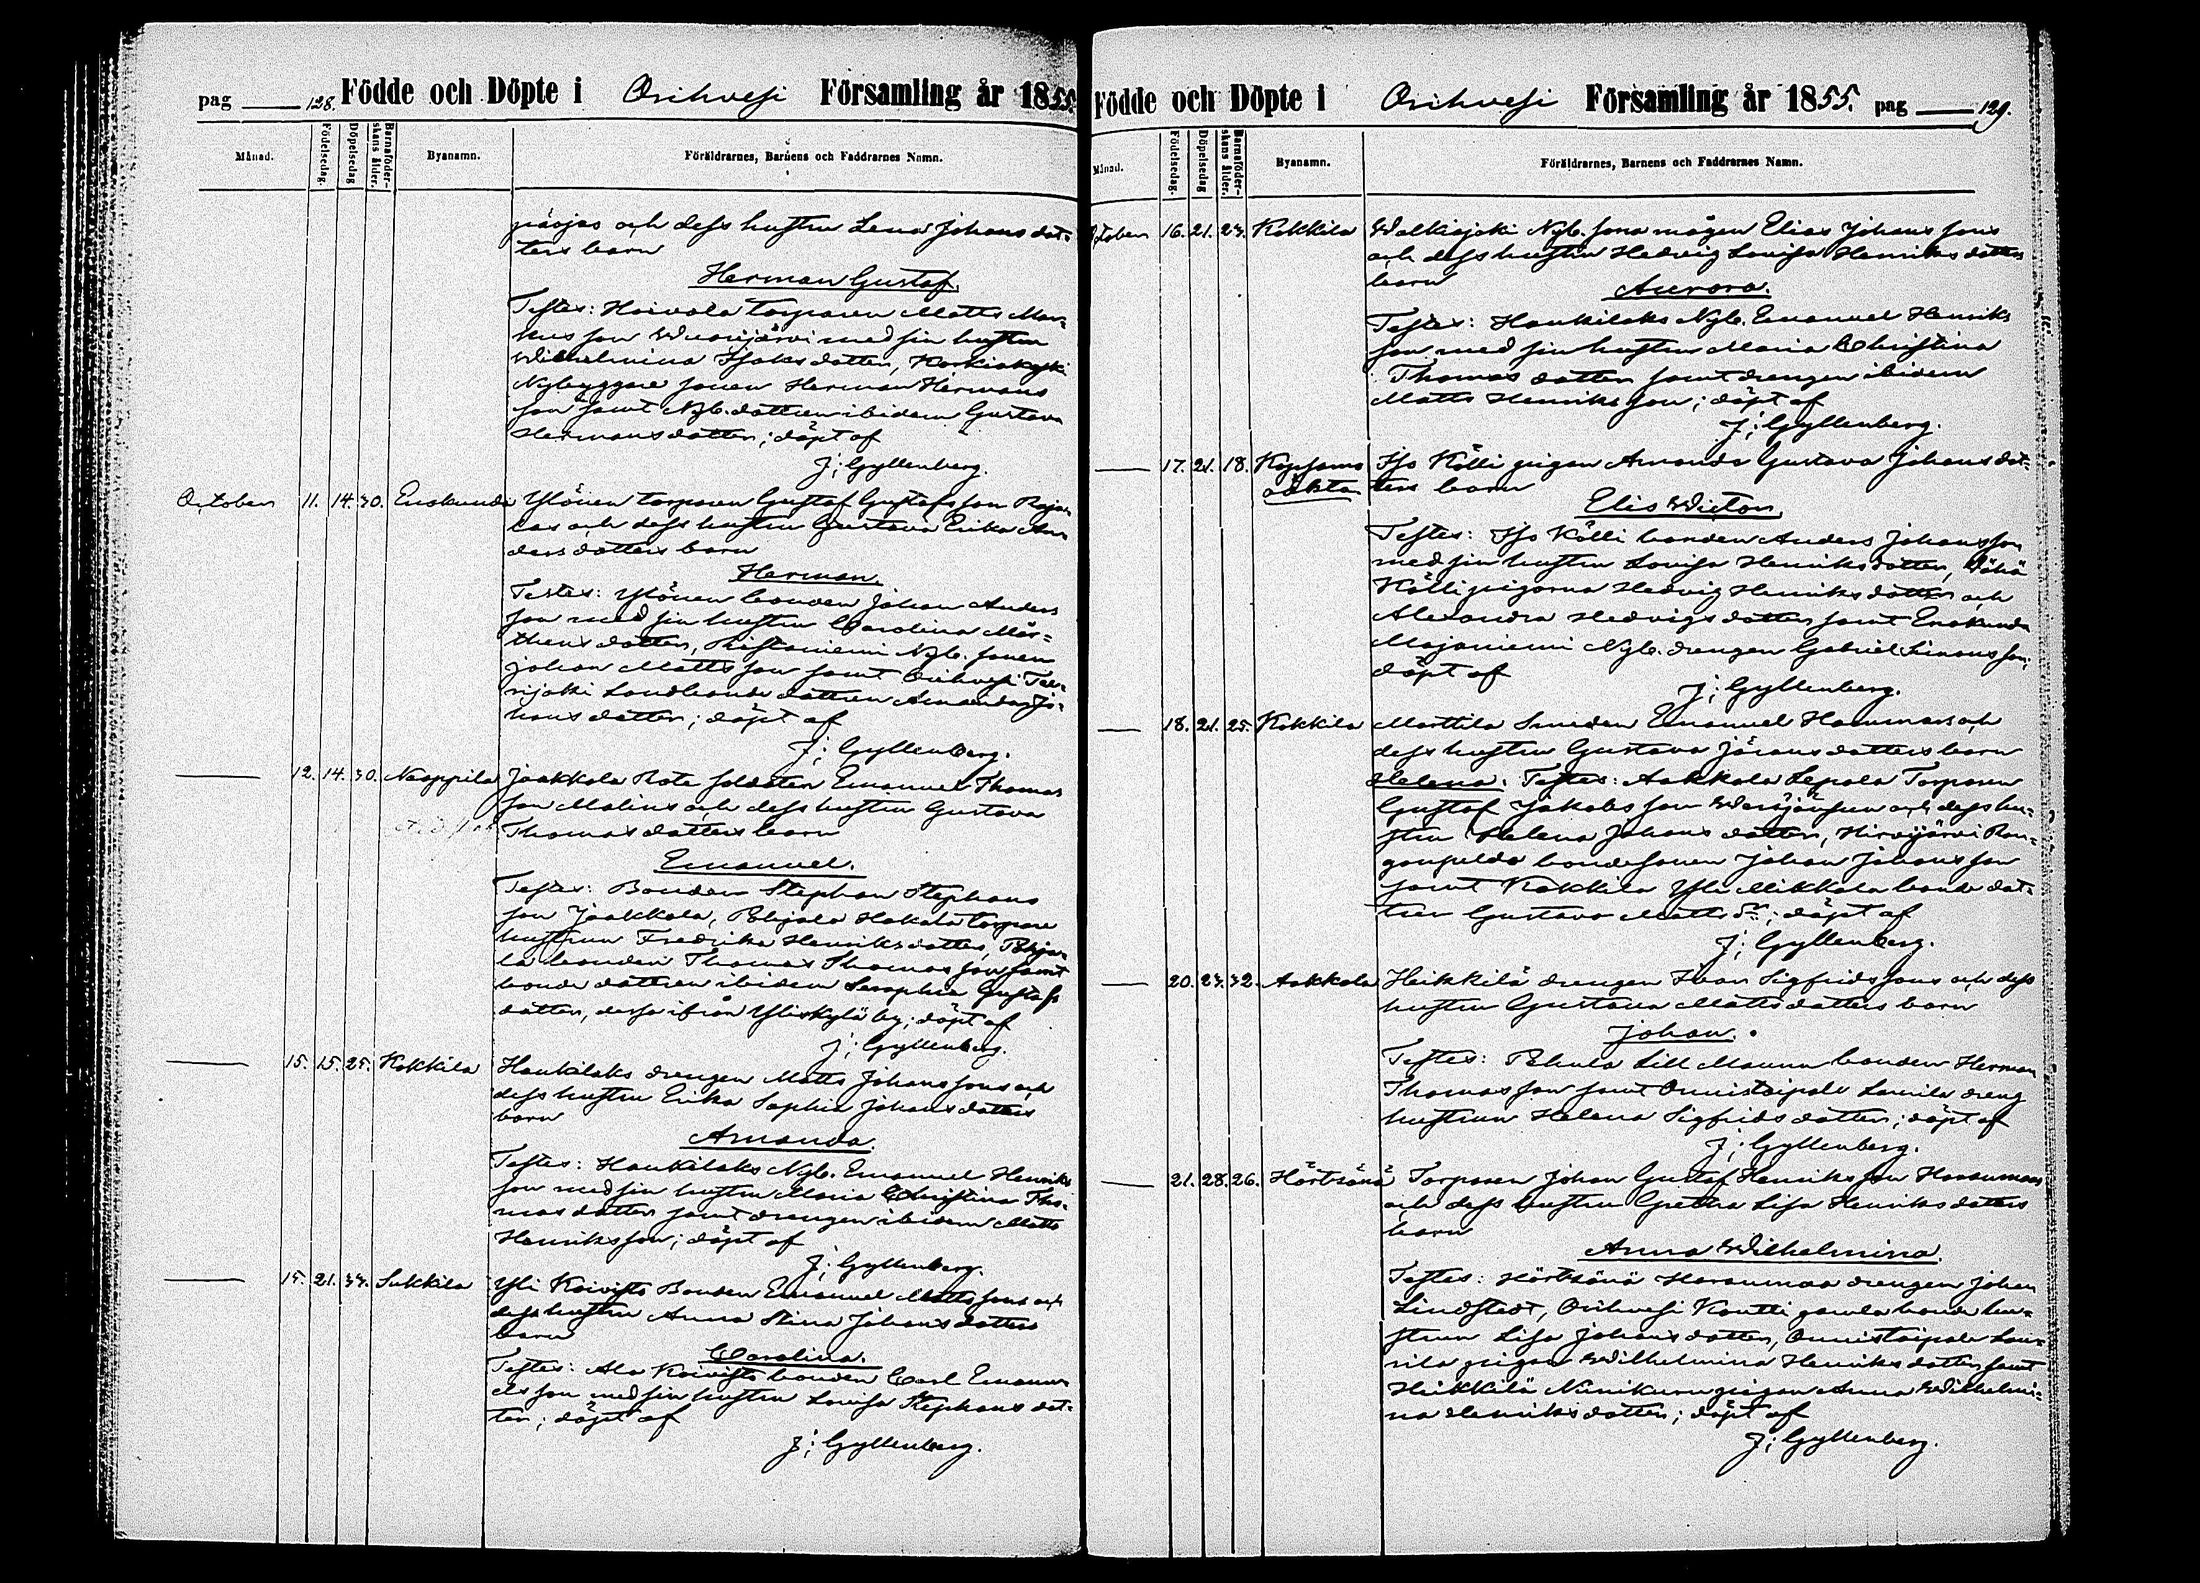 pag 128. Födde och Döpte i Orihvesi Församling år 1855.
Månad. Födelsedag. Döpelsedag Barnaföderskans ålder. Byanamn. Föräldrarnes, Barnens och Faddrarnes Namn.
och dess hustru Lena Johans dot=
ters barn
Herman Gustaf.
Testes: Hoivala torparen Matts Mar=
kus son Wuorijärvi med sin hustru
Wilhelmina Isaks dotter,
Nybyggare sonen Herman Hermans
son samt Nyb. dottren ibidem Gustava
Hermans dotter; döpt af
J; Gyllenberg.
October 11. 14. 30. Enokunda Ylönen torparen Gustaf Gustafs son
och dess hustru Gustava Erika An
ders dotters barn
Herman.
Testes: Ylönen bonden Johan Anders
son med sin hustru Carolina Mår=
thens dotter, Ristaniemi Nyb. sonen
Johan Matts son samt Orihvesi
Landbonde dottren Amanda Jo=
hans dotter; döpt af
J; Gyllenberg.
— 12. 14. 30. Naappila Jaakkola Rote soldaten Emanuel Thomas
son Malins och dess hustru Gustava
Thomas dotters barn
Emanuel.
Testes: Bonden Stephan Stephans
son Jaakkola, Pohjala Hakala torpare
hustrun Fredrika Henriks dotter, Pohja=
la bonden Thomas Thomas son samt
bonde dottren ibidem Seraphia Gustafs
dotter, dessa ifrån Yliskylä by; döpt af
J; Gyllenberg.
— 15. 15. 25. Kokkila Haukilaks drengen Matts Johans sons och
dess hustru Erika Sophia Johans dotters
barn
Amanda.
Testes: Haukilaks Nyb. Emanuel Henriks
son med sin hustru Maria Christina Tho=
mas dotter samt drengen ibidem Matts
Henriks son; döpt af
J; Gyllenberg.
— 15. 21. 34. Sukkila Yli Koivisto Bonden Emanuel Matts sons och
dess hustru Anna Stina Johans dotters
barn
Carolina.
Testes: Ala Koivisto bonden Carl Emanu
els son med sin hustru Lovisa Stephans dot=
ter; döpt af
J; Gyllenberg.
Födde och Döpte i Orihvesi Församling år 1855. pag 129.
Månad. Födelsedag. Döpelsedag Barnaföderskans ålder. Byanamn. Föräldrarnes, Barnens och Faddrarnes Namn.
October 16. 21. 24. Kokkila Walkiajoki Nyb. sona mågen Elias Johans sons
och dess hustru Hedvig Lovisa Henriks dotters
barn
Aurora.
Testes: Haukilaks Nyb. Emanuel Henriks
son med sin hustru Maria Christina
Thomas dotter samt drengen ibidem
Matts Henriks son; döpt af
J; Gyllenberg.
— 17. 21. 18. Kopsamo Iso Kölli pigan Amanda Gustava Johans dot=
oäkta ters barn
Elis Wictor.
Testes: Iso Kölli bonden Anders Johans son
med sin hustru Lovisa Henriks dotter, Vähä
Kölli pigorna Hedvig Henriks dotter och
Alexandra Hedvigs dotter samt Enokunda
Majaniemi Nyb. drengen Gabriel Simons son;
döpt af
J; Gyllenberg.
— 18. 21. 25. Kokkila Marttila Smeden Emanuel Hammars och
dess hustru Gustava Jörans dotters barn
Helena. Testes: Aakkola Lepola Torparen
Gustaf Jakobs son och dess hu=
stru Helena Johans dotter, Hirvijärvi
bondesonen Johan Johans son
samt Kokkila Yli Mikkola bonde dot=
tren Gustava Matts dr; döpt af
J; Gyllenberg.
— 20. 23. 32. Aakkola Heikkilä drengen Ivar Sigfrids sons och dess
hustru Gustava Matts dotters barn
Johan.
Testes: Pehula Lill Mauna bonden Herman
Thomas son samt Onnistaipale Laurila dreng
hustrun Helena Sigfrids dotter; döpt af
J; Gyllenberg.
— 21. 28. 26. Hörtsänä Torparen Johan Gustaf Henriks son Haraumaas
och dess hustru Gretha Lisa Henriks dotters
barn
Anna Wilhelmina.
Testes: Hörtsänä Haraumaa drengen Johan
Lindstedt, Orihvesi Kontti gamla bonde hu=
strun Lisa Johans dotter, Onnistaipale Lau=
rila pigan Wilhelmina Henriks dotter samt
Heikkilä pigan Anna Wilhelmi=
na Henriks dotter; döpt af
J; Gyllenberg.